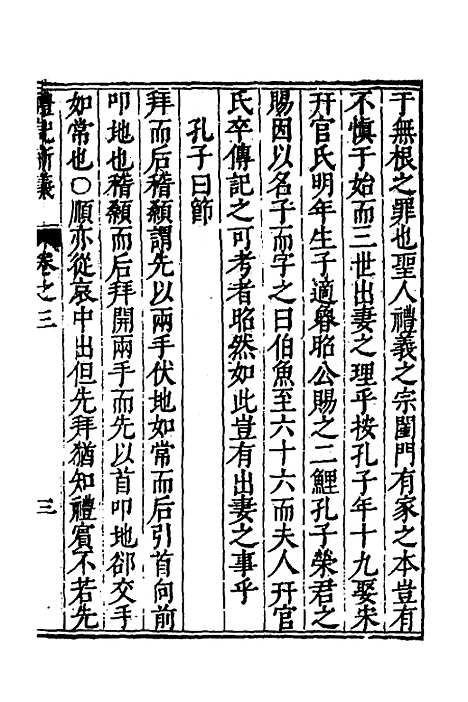 于無根之罪也聖人禮義之宗閨門有家之本豈有
不慎于始而三世出妻之理乎按孔子年十九娶宋
幵官氏明年生子適魯昭公賜之二鯉孔子榮君之
賜因以名子而字之曰伯魚至六十六而夫人幵官
氏卒傳記之可考者昭然如此豈有出妻之事乎
孔子曰節
拜而后稽顙謂先以兩手伏地如常而后引首向前
叩地也稽顙而后拜開兩手而先以首叩地卻交手
如常也○順亦從哀中出但先拜猶知禮賓不若先
禮記新義 卷之三 三